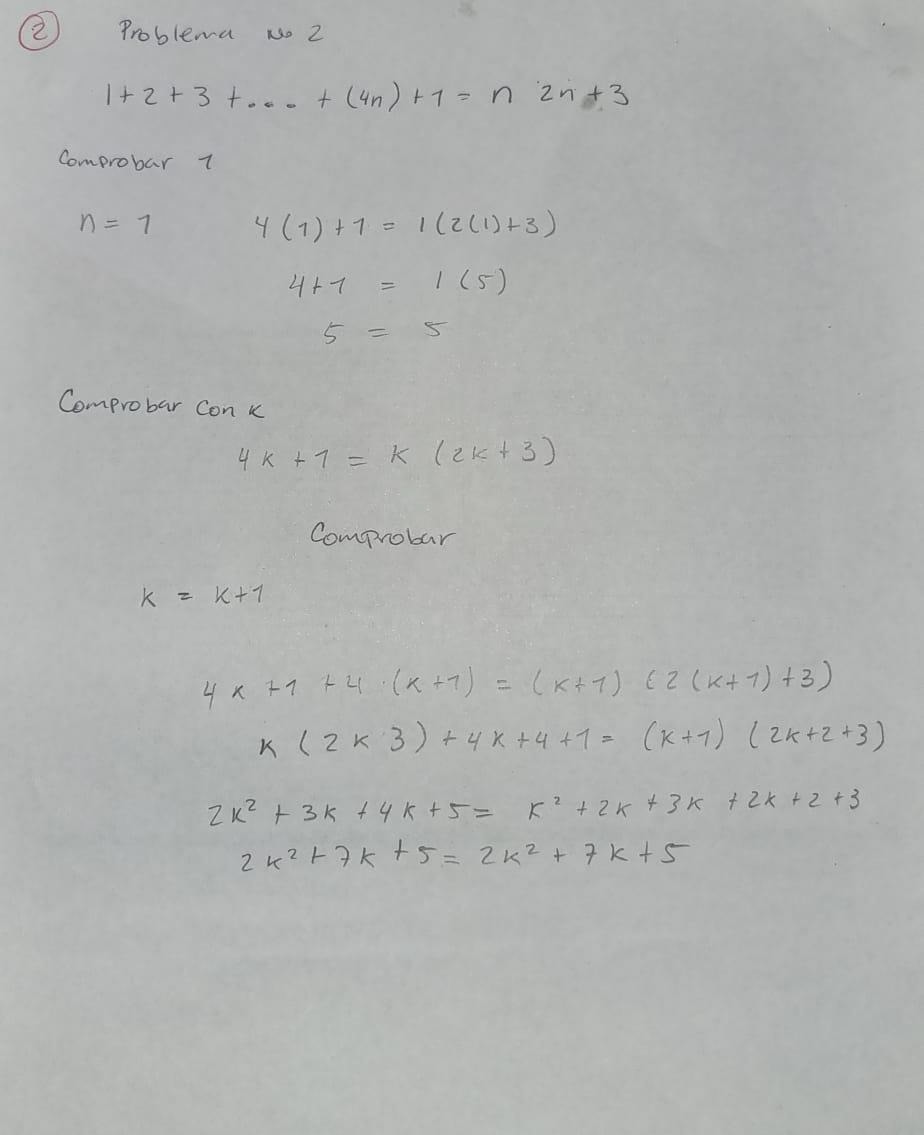 2 Problema No 2
1+2+3+.... + (4n)+1 = n 2n+3
Comprobar 1
n = 1 4(1)+1 = 1(2(1)+3)
4+1 = 1(5)
5 = 5
Comprobar con k
4k+1 = k (2k+3)
Comprobar
k = k+1
4k+1+4·(k+1) = (k+1) (2(k+1)+3)
k(2k 3)+4k+4+1 = (k+1) (2k+2+3)
2k²+3k+4k+5 = k²+2k+3k+2k+2+3
2k²+7k+5 = 2k²+7k+5